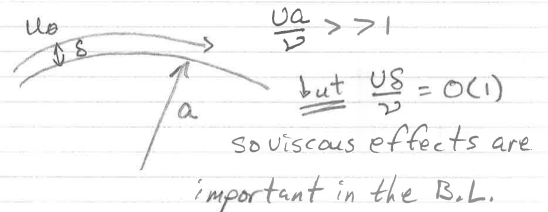 U₀
δ
a
Ua/ν >> 1
but Uδ/ν = O(1)
so viscous effects are
important in the B.L.